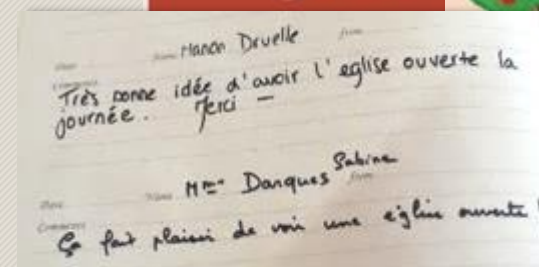 Manon Druelle
Très bonne idée d'avoir l'eglise ouverte la
journée. Merci –
Mme Danques Sabine
Ça fait plaisir de voir une église ouverte !